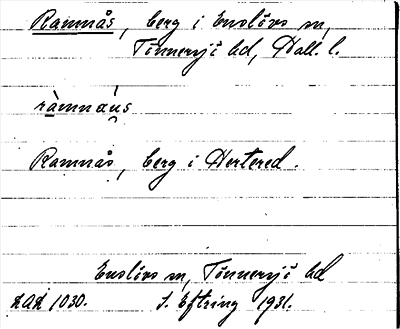 Ramnås, berg i Enslövs sn,
Tönnersjö hd, Hall. l.
ràmnáu̯s
Ramnås, berg i Hertered.
Enslövs sn, Tönnersjö hd
LAL 1030. S. Eftring 1931.